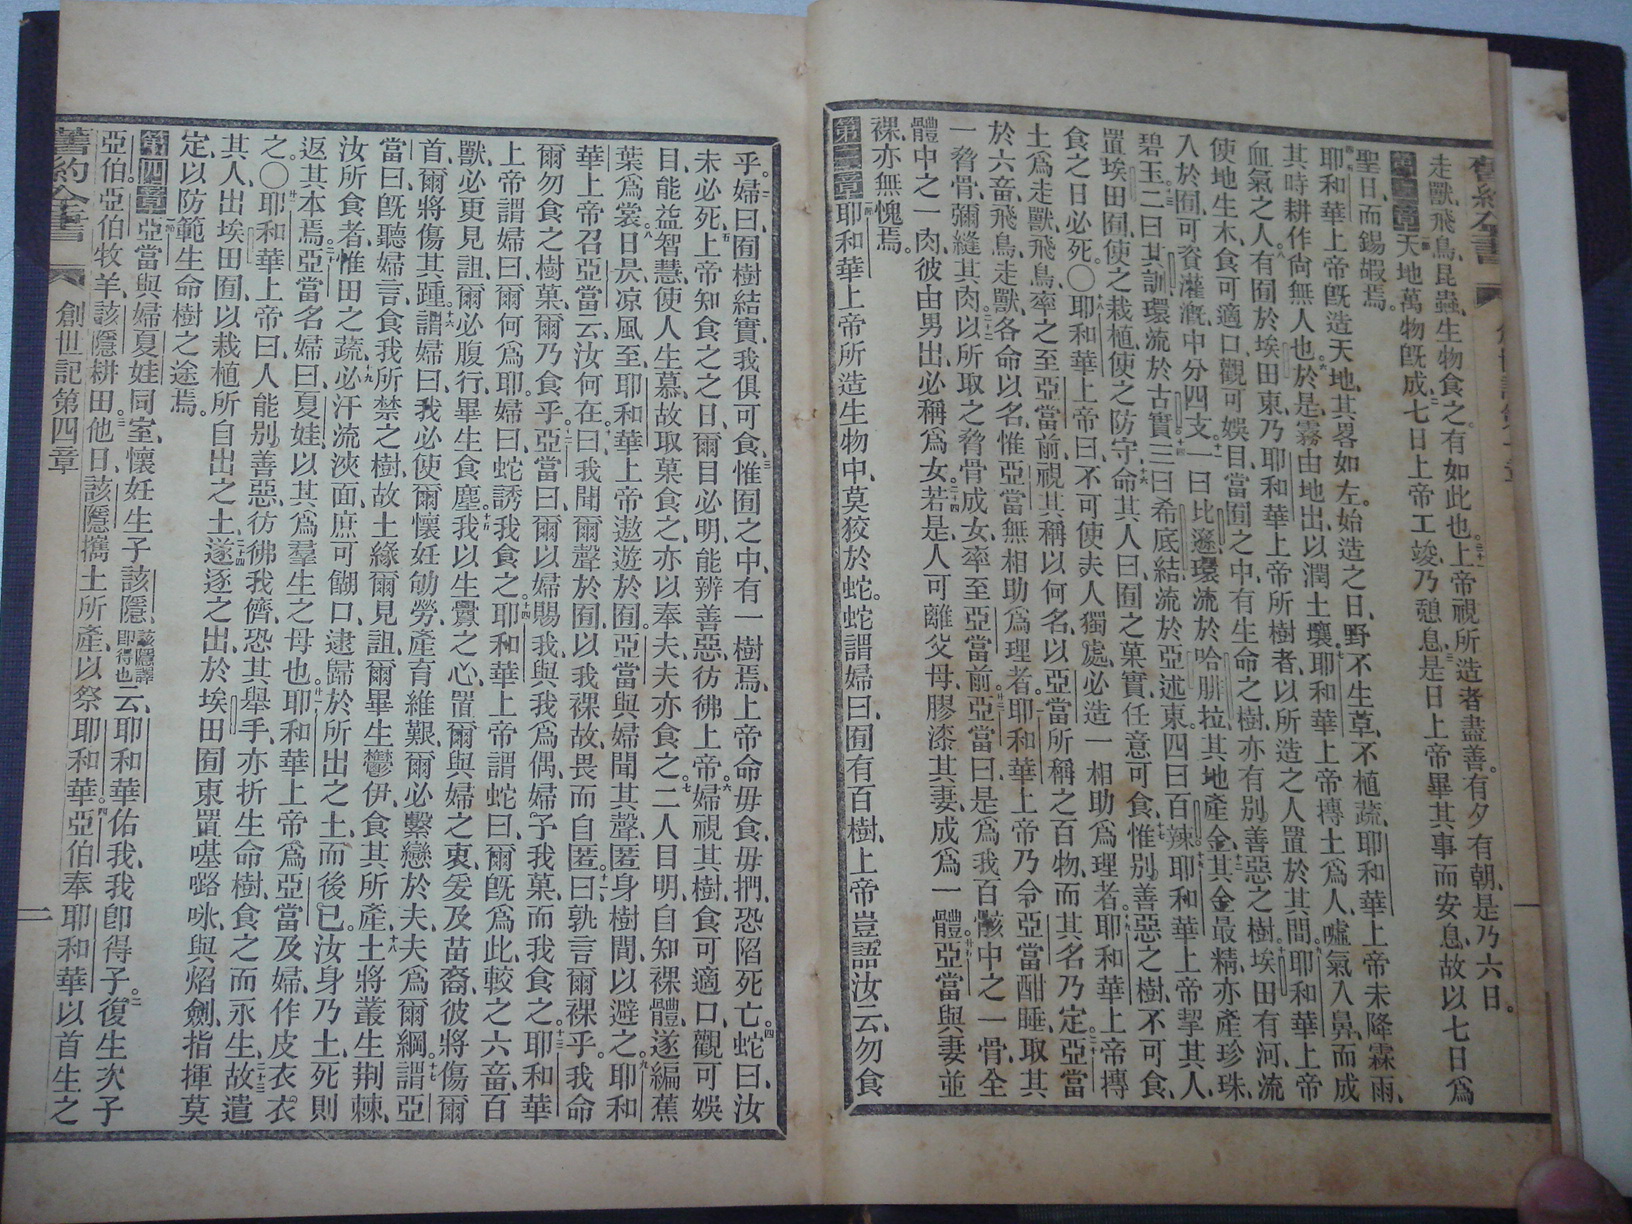 舊約全書
走獸、飛鳥、昆蟲、生物食之、有如此也。上帝視所造者盡善、有夕有朝、是乃六日。
第二章 天地萬物旣成、七日上帝工竣、乃憩息、是日上帝畢其事而安息、故以七日爲
聖日、而錫嘏焉。
耶和華上帝旣造天地、其畧如左。始造之日、野不生草、不植蔬、耶和華上帝未降霖雨、
其時耕作尙無人也、於是霧由地出、以潤土壤、耶和華上帝摶土爲人、噓氣入鼻、而成
血氣之人、有囿於埃田東、乃耶和華上帝所樹者、以所造之人置於其間、耶和華上帝
使地生木、食可適口、觀可娛目、當囿之中、有生命之樹、亦有別善惡之樹、埃田有河、流
入於囿、可資灌漑、中分四支、一曰比遜、環流於哈腓拉、其地產金、其金最精、亦產珍珠、
碧玉、二曰其訓、環流於古實、三曰希底結、流於亞述東、四曰百辣、耶和華上帝挈其人、
置埃田囿、使之栽植、使之防守、命其人曰、囿之菓實、任意可食、惟別善惡之樹、不可食、
食之日必死。〇耶和華上帝曰、不可使夫人獨處、必造一相助爲理者、耶和華上帝摶
土爲走獸、飛鳥、率之至亞當前、視其稱以何名、以亞當所稱之百物、而其名乃定、亞當
於六畜、飛鳥、走獸、各命以名、惟亞當無相助爲理者、耶和華上帝乃令亞當酣睡、取其
一脅骨、彌縫其肉、以所取之脅骨成女、率至亞當前、亞當曰、是爲我百骸中之一骨、全
體中之一肉、彼由男出、必稱爲女、若是、人可離父母、膠漆其妻、成爲一體、亞當與妻並
裸、亦無愧焉。
第三章 耶和華上帝所造生物中、莫狡於蛇、蛇謂婦曰、囿有百樹、上帝豈語汝云、勿食
乎、婦曰、囿樹結實、我俱可食、惟囿之中、有一樹焉、上帝命毋食、毋捫、恐陷死亡、蛇曰、汝
未必死、上帝知食之之日、爾目必明、能辨善惡、彷彿上帝、婦視其樹、食可適口、觀可娛
目、能益智慧、使人生慕、故取菓食之、亦以奉夫、夫亦食之、二人目明、自知裸體、遂編蕉
葉爲裳、日昃凉風至、耶和華上帝遨遊於囿、亞當與婦聞其聲、匿身樹間、以避之、耶和
華上帝召亞當云、汝何在、曰、我聞爾聲於囿、以我裸故、畏而自匿、曰、孰言爾裸乎、我命
爾勿食之樹菓、爾乃食乎、亞當曰、爾以婦賜我、與我爲偶、婦予我菓、而我食之、耶和華
上帝謂婦曰、爾何爲耶、婦曰、蛇誘我食之、耶和華上帝謂蛇曰、爾旣爲此、較之六畜百
獸、必更見詛、爾必腹行、畢生食塵、我以生釁之心、置爾與婦之衷、爰及苗裔、彼將傷爾
首、爾將傷其踵、謂婦曰、我必使爾懷妊劬勞、產育維艱、爾必繫戀於夫、夫爲爾綱、謂亞
當曰、旣聽婦言、食我所禁之樹、故土緣爾見詛、爾畢生鬱伊、食其所產、土將叢生荆棘、
汝所食者、惟田之蔬、必汗流浹面、庶可餬口、逮歸於所出之土、而後已、汝身乃土、死則
返其本焉、亞當名婦曰、夏娃、以其爲羣生之母也、耶和華上帝爲亞當及婦、作皮衣衣
之。〇耶和華上帝曰、人能別善惡、彷彿我儕、恐其舉手、亦折生命樹、食之而永生、故遣
其人、出埃田囿、以栽植所自出之土、遂逐之出、於埃田囿東、置𠼻㗔𠲖、與焰劍、指揮莫
定、以防範生命樹之途焉。
第四章 亞當與婦夏娃同室、懷妊生子該隱、該隱譯卽得也云、耶和華佑我、我卽得子、復生次子
亞伯、亞伯牧羊、該隱耕田、他日、該隱攜土所產、以祭耶和華、亞伯奉耶和華以首生之
舊約全書 創世記第四章 二